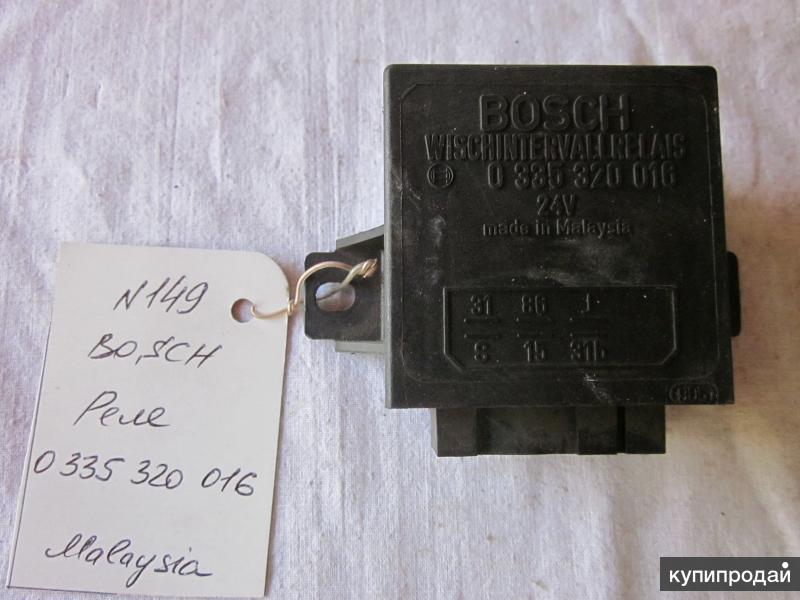 N149
BOSCH
Реле
0 335 320 016
Malaysia
BOSCH
WISCHINTERVALLRELAIS
0 335 320 016
24V
made in Malaysia
31 86 J
S 15 31b
купипродай